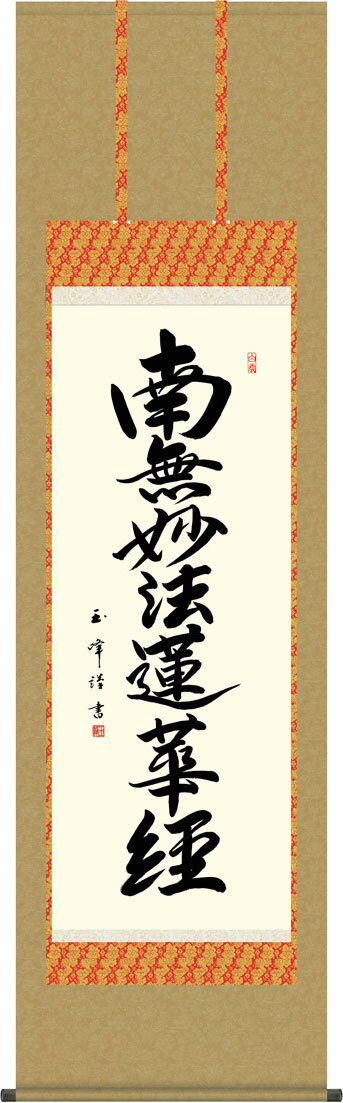 南無妙法蓮華經
玉峰謹書